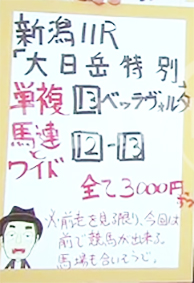 新潟11R
「大日岳特別」
単複 13 ベッラヴォルタ
馬連とワイド 12-13
全て3000円ずつ
※前走を見る限り、今回は
前で競馬が出来る。
馬場も合いそう。